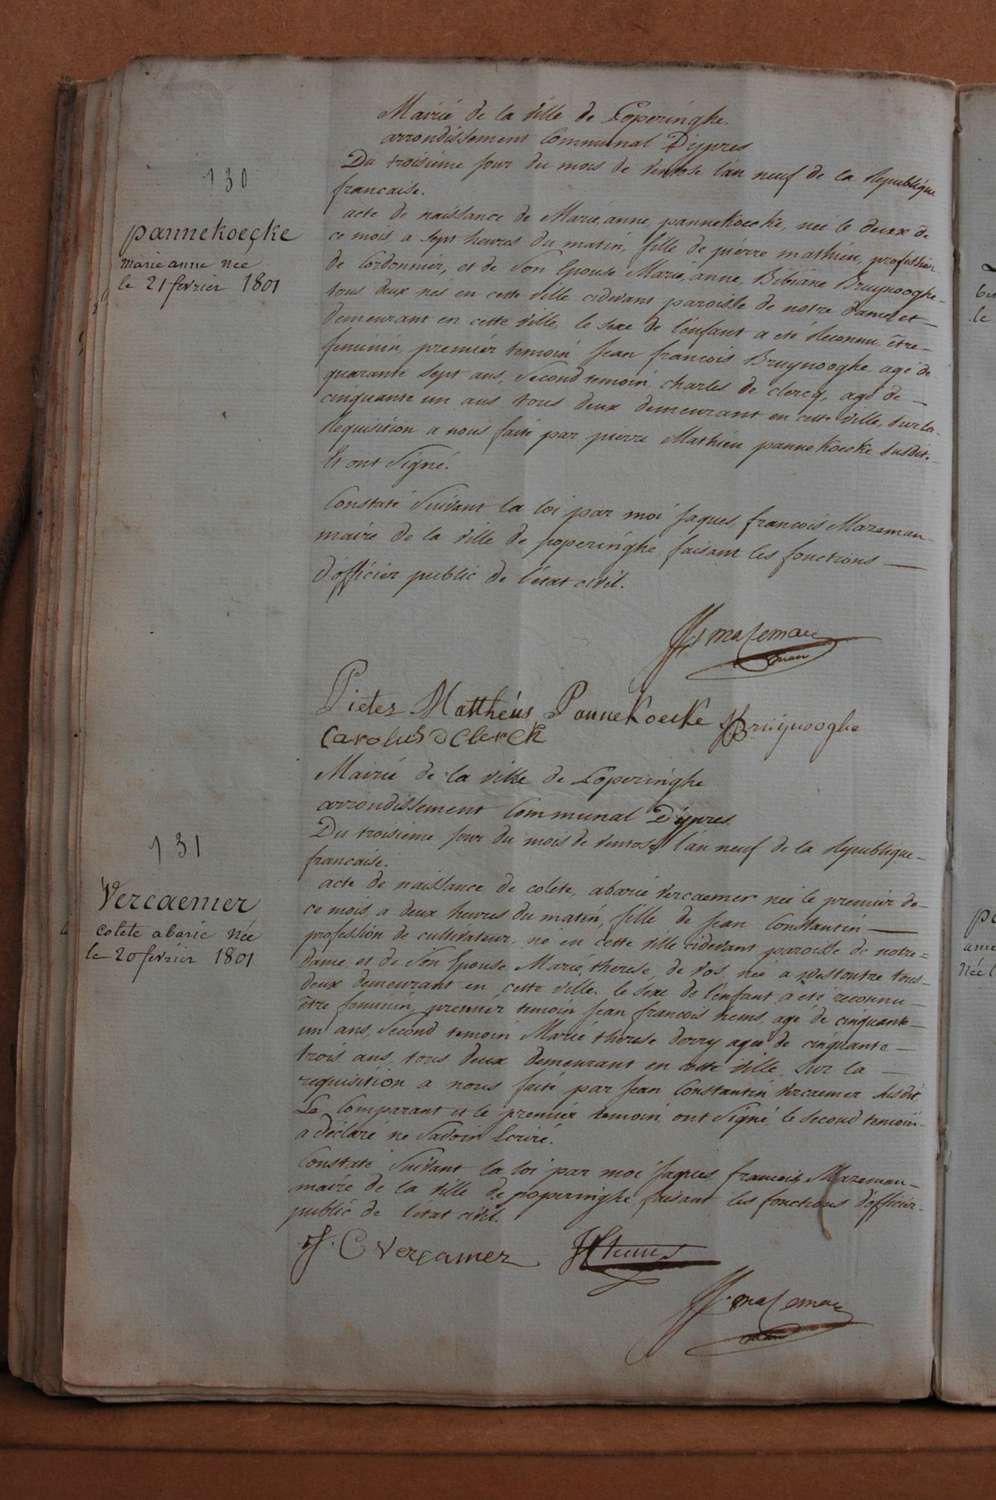 130
pannekoecke
marie anne née
le 21 février 1801
Mairié de la ville de Poperinghe
arrondissement Communal D'ypres
Du troisieme jour du mois de ventose l'an neuf de la Republique
francaise.
acte de naissance de Marie, anne, pannekoecke, née le deux de
ce mois a sept heures du matin, fille de pierre mathieu, profession
de Cordonnier, et de son Epouse Marie, anne, Bibiane Bruynooghe
tous deux nés en cette ville cidevant paroisse de notre dame, et
demeurant en cette ville, le sexe de l'enfant a eté Reconnu être
feminin, premiér temoin Jean francois Bruynooghe agé de
quarante sept ans, second temoin charles de clercq, agé de
cinquante un ans tous deux demeurant en cette ville, sur la
Requisition a nous faite par pierre Mathieu pannekoecke susdit.
Et ont signé.
Constaté suivant la loi par moi Jaques francois Mazeman
maire de la ville de poperinghe, faisant les fonctions
d'officier public de l'état civil.
JF mazeman
maire
Pieter Mattheús Pannekoecke JFBruynooghe
Carolus D Clerck
131
Vercaemer
colete abarie née
le 20 février 1801
Mairié de la ville de Poperinghe
arrondissement Communal D'ypres
Du troisieme jour du mois de ventose l'an neuf de la Republique
francaise.
acte de naissance de colete, abarie vercaemer née le premier de
ce mois, a deux heures du matin, fille de Jean Constantin
profession de cultivateur, né en cette ville cidevant paroisse de notre
dame, et de son Epouse Marié, therese, de vos, née a westoutre tous
deux demeurant en cette ville. le sexe de l'enfant a eté reconnu
être feminin, premiér temoin Jean francois hems, agé de cinquante
un ans, second temoin Marié therese Dorry agee de cinquante
trois ans, tous deux demeurant en cette ville, sur la
requisition a nous faite par Jean Constantin vercaemer susdit
Le Comparant et le premier temoin ont signé, le second temoin
a déclaré ne savoir Ecrire.
Constaté suivant la loi par moi Jaques francois Mazeman
maire de la ville de poperinghe, faisant les fonctions d'officier
public de l'état civil.
J. C vercamer JF hems
JF. mazeman